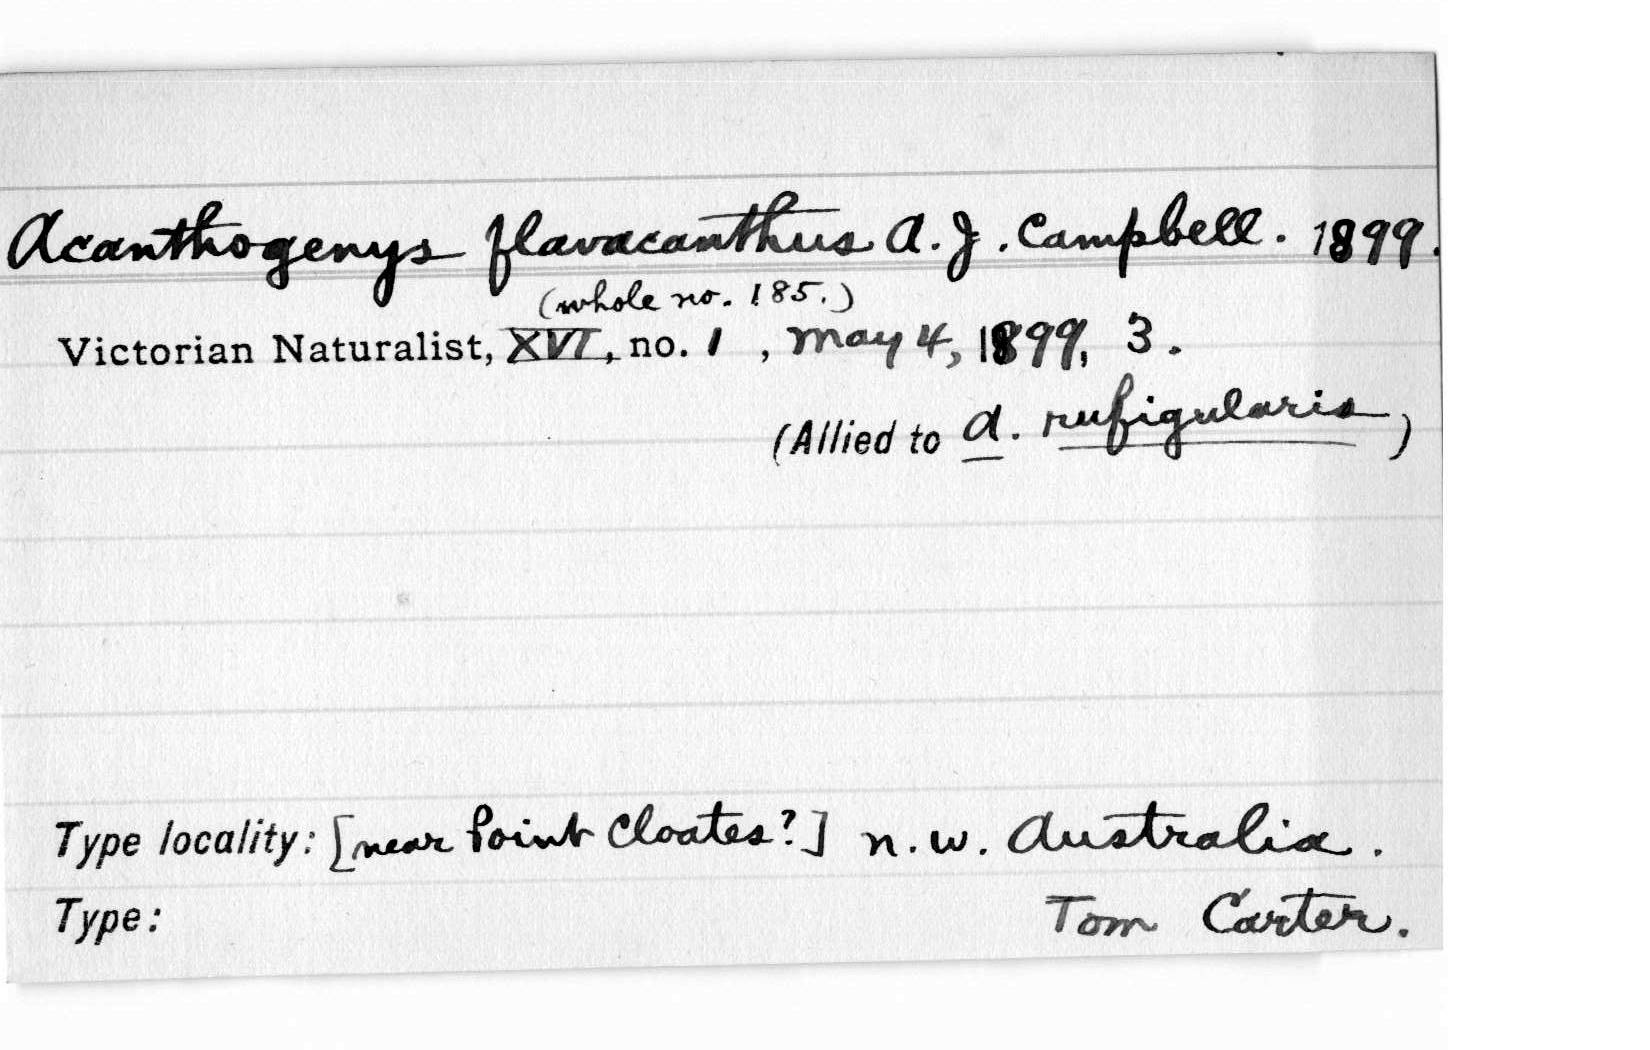 Acanthogenys flavacanthus A. J. Campbell. 1899.
(whole no. 185.)
Victorian Naturalist, XVI, no. 1, May 4, 1899, 3.
(Allied to A. rufigularis)
Type locality: [near Point Cloates?] n.w. Australia.
Type: Tom Carter.